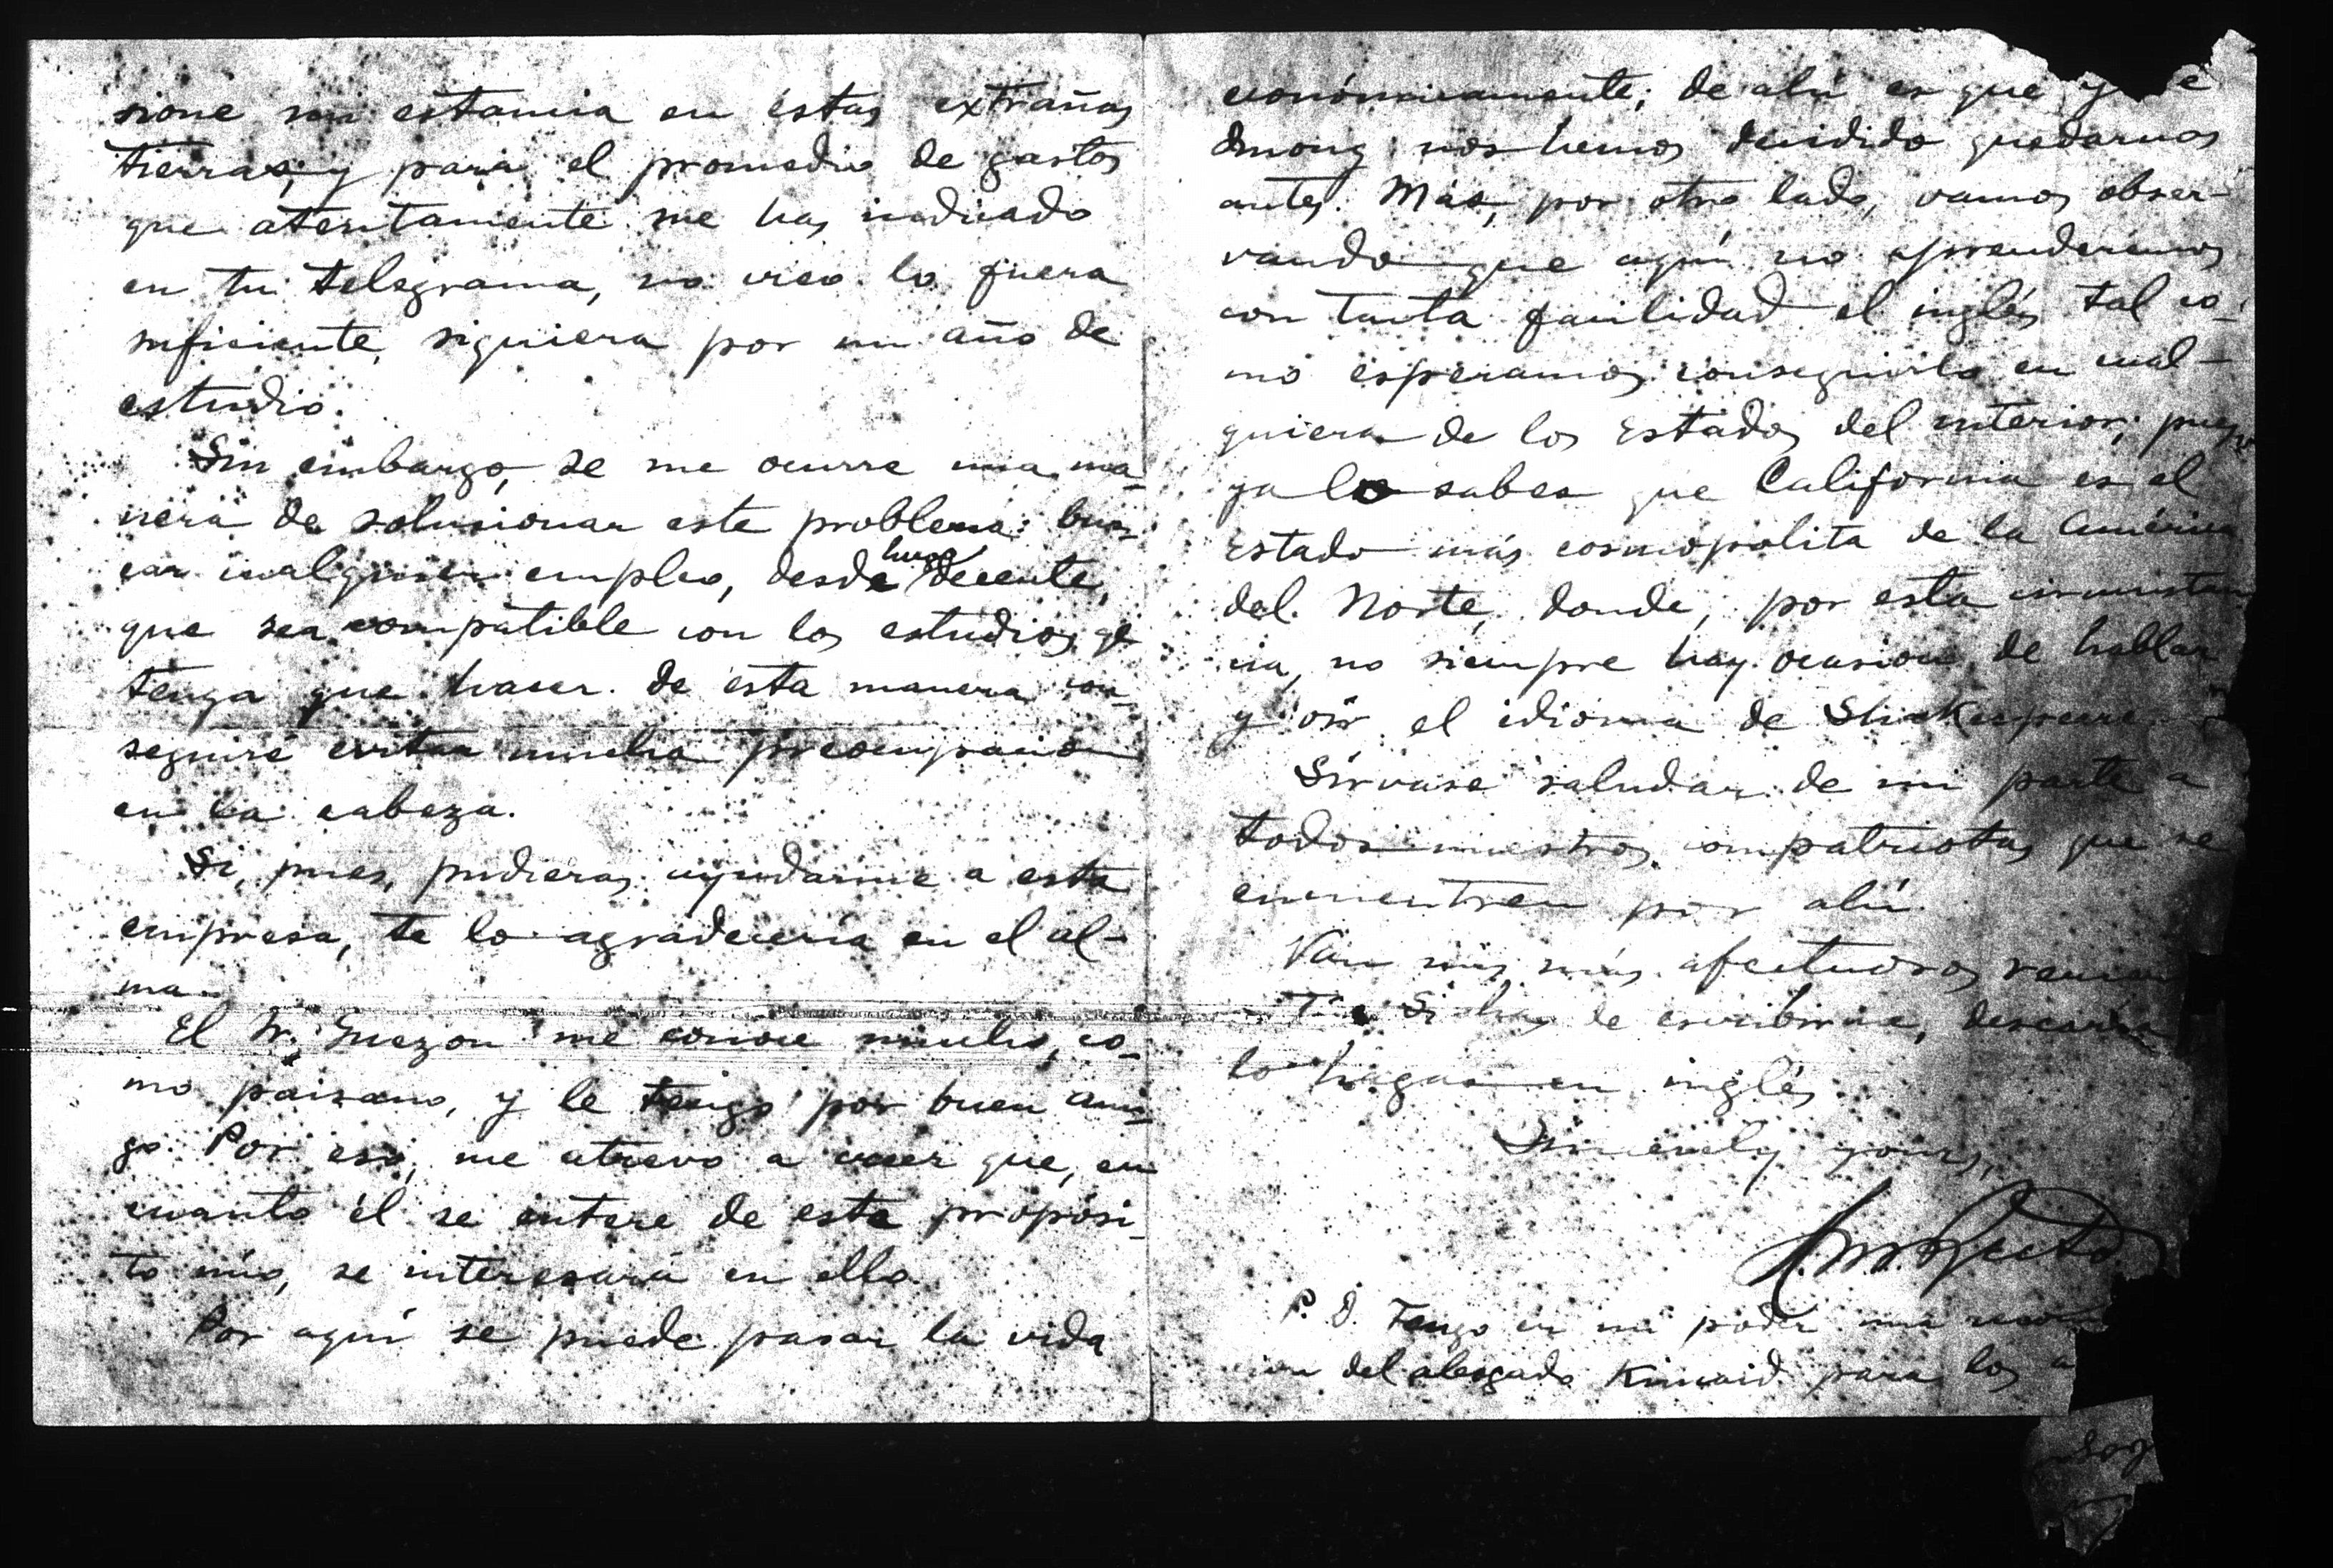 sione mi estancia en éstas extrañas
tierras; y para el promedio de gastos
que atentamente me has indicado
en tu telegrama, no creo lo fuera
suficiente, siquiera por un año de
estudio.
Sin embargo, se me ocurre una ma-
nera de solucionar este problema: bus-
car cualquier empleo, desde luego decente,
que sea compatible con los estudios qe
tenga que hacer. de esta manera con-
seguiré evitar mucha preocupación
en la cabeza.
Si, pues, pudieras ayudarme a esta
empresa, te lo agradecería en el al-
ma.
El Sr. Quezon me conoce mucho, co-
mo paisano, y le tengo por buen ami-
go. Por eso, me atrevo a creer que, en
cuanto él se entere de este propósi-
to mío, se interesará en ello.
Por aquí se puede pasar la vida
económicamente; de ahí es que
nos hemos decidido quedarnos
antes. Mas, por otro lado, vamos obser-
vando que aquí no aprenderemos
con tanta facilidad el inglés tal co-
mo esperamos conseguirlo en cual-
quiera de los Estados del interior; pues
ya lo sabes que California es el
Estado más cosmopolita de la América
del Norte, donde, por esta circunstan
cia, no siempre hay ocasion de hablar
y oir el idioma de Shakespeare.
Sírvase saludar de mi parte a
todos nuestros compatriotas que se
encuentren por ahí.
Van mis más afectuosos
Si has de escribirme, desearía
lo hagas en inglés.
Sincerely yours,
M. Recto
P. D. Tengo en mi poder una
del abogado Kincaid para los